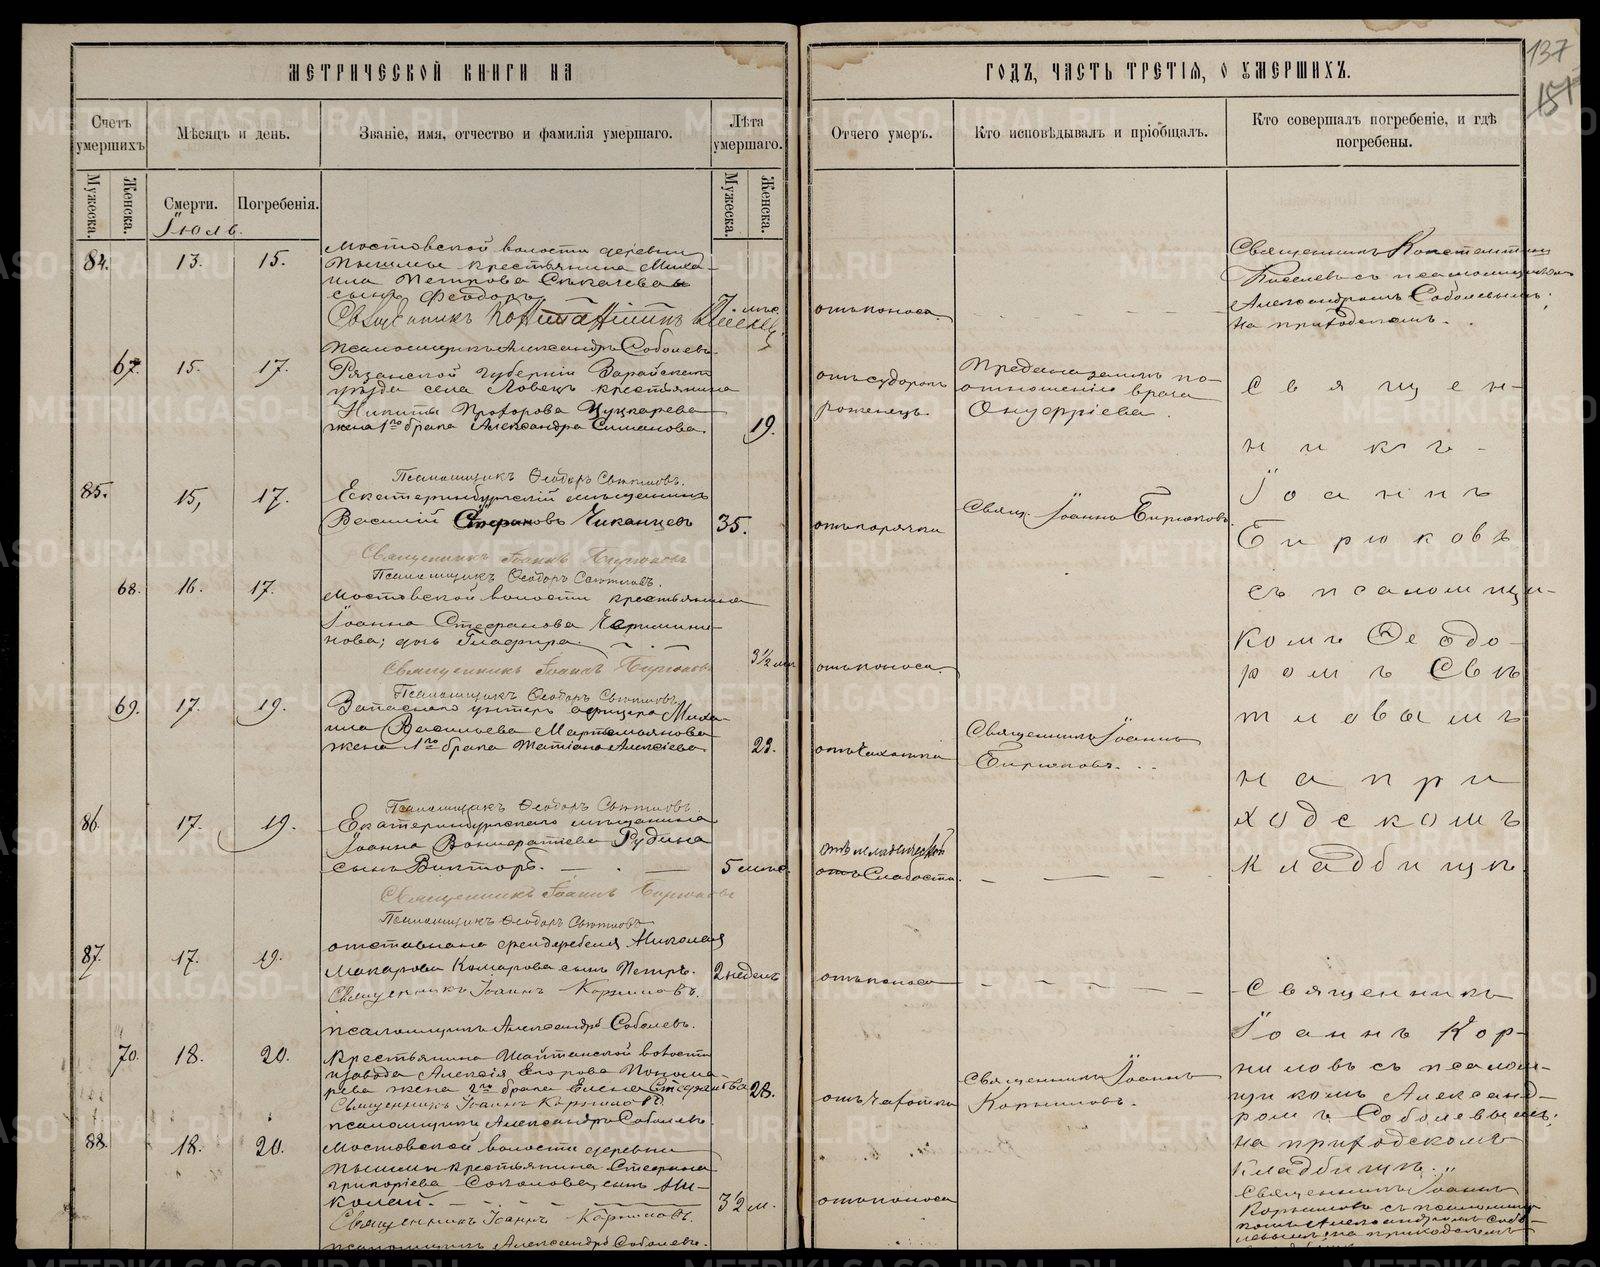 МЕТРИЧЕСКОЙ КНИГИ НА
ГОДЪ, ЧАСТЬ ТРЕТІЯ, О УМЕРШИХЪ.
137
151
Счетъ умершихъ
Мѣсяцъ и день.
Званіе, имя, отчество и фамилія умершаго.
Лѣта умершаго.
Отчего умеръ.
Кто исповѣдывалъ и пріобщалъ.
Кто совершалъ погребеніе, и гдѣ погребены.
Мужеска.
Женска.
Смерти.
Погребенія.
Мужеска.
Женска.
Іюль.
84.
13.
15.
Мостовской волости деревни
Пышмы крестьянина Миха-
ила Петрова
сынъ Ѳеодоръ
7 мѣс.
отъ поноса.
Священникъ Константинъ
съ псаломщикомъ
Александромъ Соболевымъ;
на приходскомъ.
Священникъ Константинъ
псаломщикъ Александръ Соболевъ.
67.
15.
17.
Рязанской губерніи Зарайскаго
уѣзда села Ловецъ крестьянина
Никиты Прохорова Цуцкарева
жена 1го брака Александра Симанова.
19.
отъ судорогъ
роженецъ.
Предана землѣ по
отношенію врача
Онуфріева.
Псаломщикъ Ѳеодоръ Свѣтловъ.
85.
15,
17.
Екатеринбургскій мѣщанинъ
Василій Стефановъ Чиканцевъ
35.
отъ горячки
Свящ. Іоаннъ Бирюковъ.
Священникъ Іоаннъ Бирюковъ
Псаломщикъ Ѳеодоръ Свѣтловъ.
68.
16.
17.
Мостовской волости крестьянина
Іоанна Стефанова
нова; дочь Глафира.
3½ м.
отъ поноса.
Священникъ Іоаннъ Бирюковъ
Псаломщикъ Ѳеодоръ Свѣтловъ.
69.
17.
19.
Запаснаго унтеръ офицера Миха-
ила Васильева Мартемьянова
жена 1го брака Татіана Алексіева
22.
отъ чахотки
Священникъ Іоаннъ
Бирюковъ.
Псаломщикъ Ѳеодоръ Свѣтловъ.
86
17.
19.
Екатеринбургскаго мѣщанина
Іоанна Рудина
сынъ Викторъ.
5 мѣс.
отъ младенческой
слабости.
Священникъ Іоаннъ Бирюковъ
Псаломщикъ Ѳеодоръ Свѣтловъ
Священ-
никъ
Іоаннъ
Бирюковъ
съ псаломщи-
комъ Ѳеодо-
ромъ Свѣ
тловымъ
на при
ходскомъ
кладбищѣ.
87.
17.
19.
отставнаго фельдфебеля Николая
Макарова Комарова сынъ Петръ.
2 недель
отъ поноса
Священникъ Іоаннъ Корниловъ.
псаломщикъ Александръ Соболевъ.
Священникъ
Іоаннъ Кор-
ниловъ съ псалом-
щикомъ Александ-
ромъ Соболевымъ;
на приходскомъ
кладбищѣ.
70.
18.
20.
Крестьянина Шайтанской волости
и завода Алексія Егорова Понома-
рева жена 2го брака Елена Стефанова
28.
отъ чахотки
Священникъ Іоаннъ
Корниловъ.
Священникъ Іоаннъ Корниловъ
псаломщикъ Александръ Соболевъ.
88
18.
20.
Мостовской волости деревни
Пышмы крестьянина Стефана
Григоріева Соколова, сынъ Ни-
колай.
3½ м.
отъ поноса
Священникъ Іоаннъ
Корниловъ съ псаломщи-
комъ Александромъ Собо-
левымъ; на приходскомъ
Священникъ Іоаннъ Корниловъ.
псаломщикъ Александръ Соболевъ.
METRIKI.GASO-URAL.RU